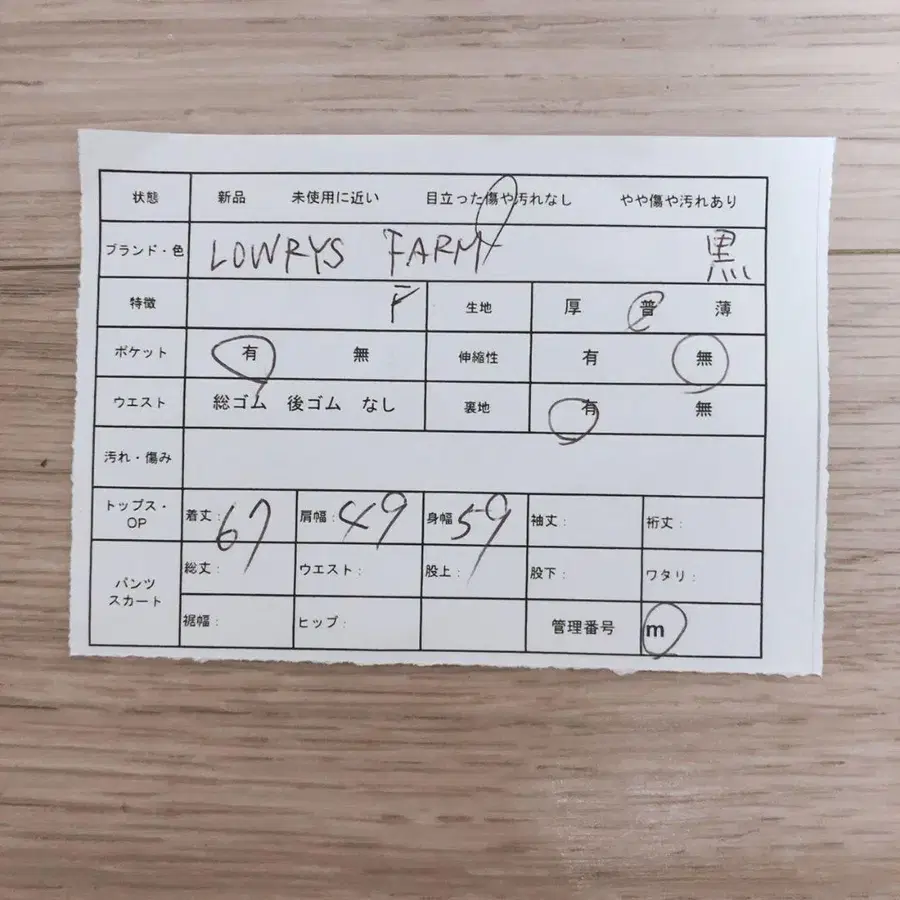 状態 新品 未使用に近い 目立った傷や汚れなし やや傷や汚れあり
ブランド・色 LOWRYS FARM 黒
特徴 F 生地 厚 普 薄
ポケット 有 無 伸縮性 有 無
ウエスト 総ゴム 後ゴム なし 裏地 有 無
汚れ・傷み
トップス・OP 着丈: 67 肩幅: 49 身幅 59 袖丈: 裄丈:
パンツ スカート 総丈: ウエスト: 股上: 股下: ワタリ:
裾幅: ヒップ: 管理番号 m